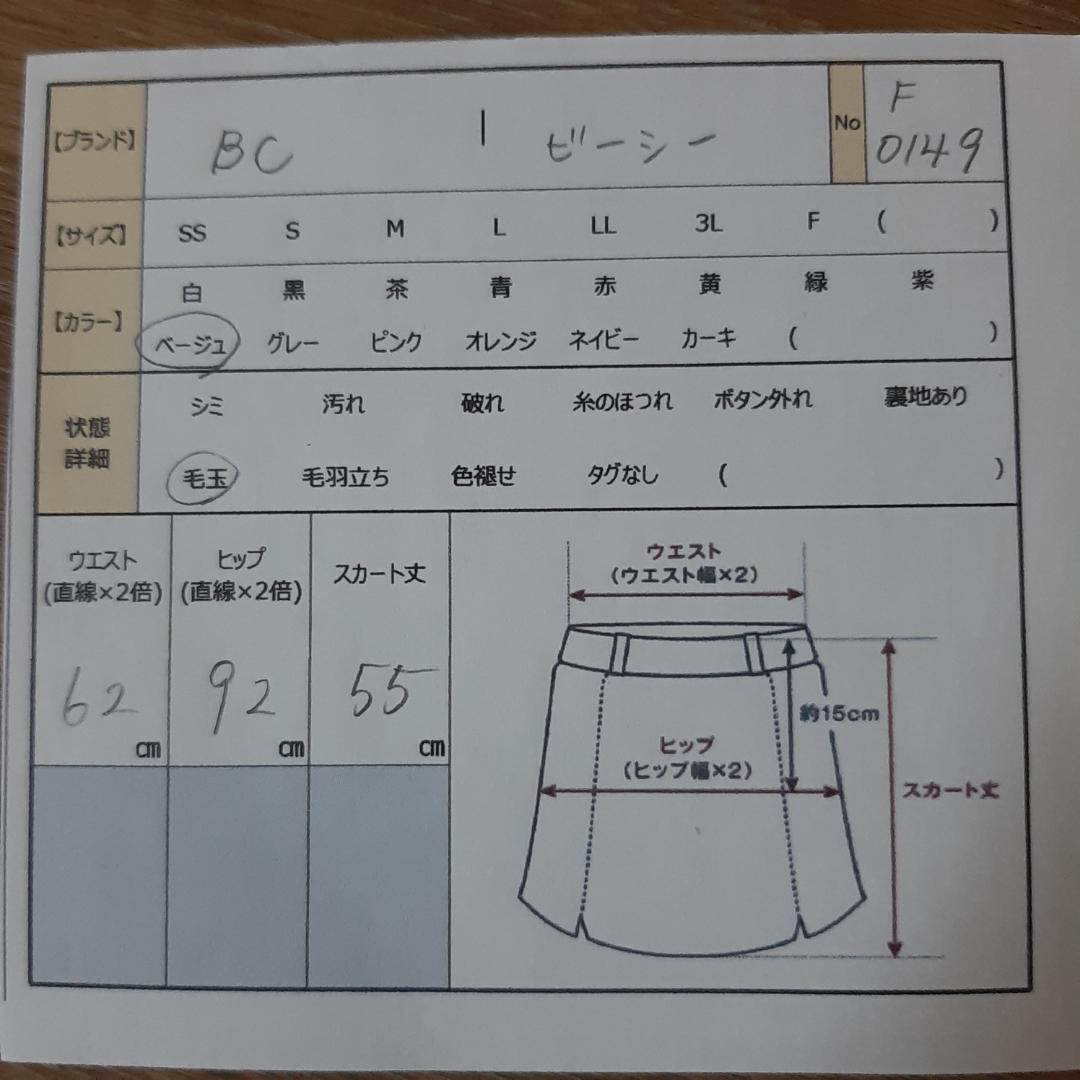 【ブランド】 BC | ビーシー No F 0149
【サイズ】 SS S M L LL 3L F ( )
【カラー】 白 黒 茶 青 赤 黄 緑 紫
ベージュ グレー ピンク オレンジ ネイビー カーキ ( )
状態詳細 シミ 汚れ 破れ 糸のほつれ ボタン外れ 裏地あり
毛玉 毛羽立ち 色褪せ タグなし ( )
ウエスト ヒップ スカート丈
(直線×2倍) (直線×2倍)
62 cm 92 cm 55 cm
ウエスト
(ウエスト幅×2)
約15cm
ヒップ
(ヒップ幅×2)
スカート丈